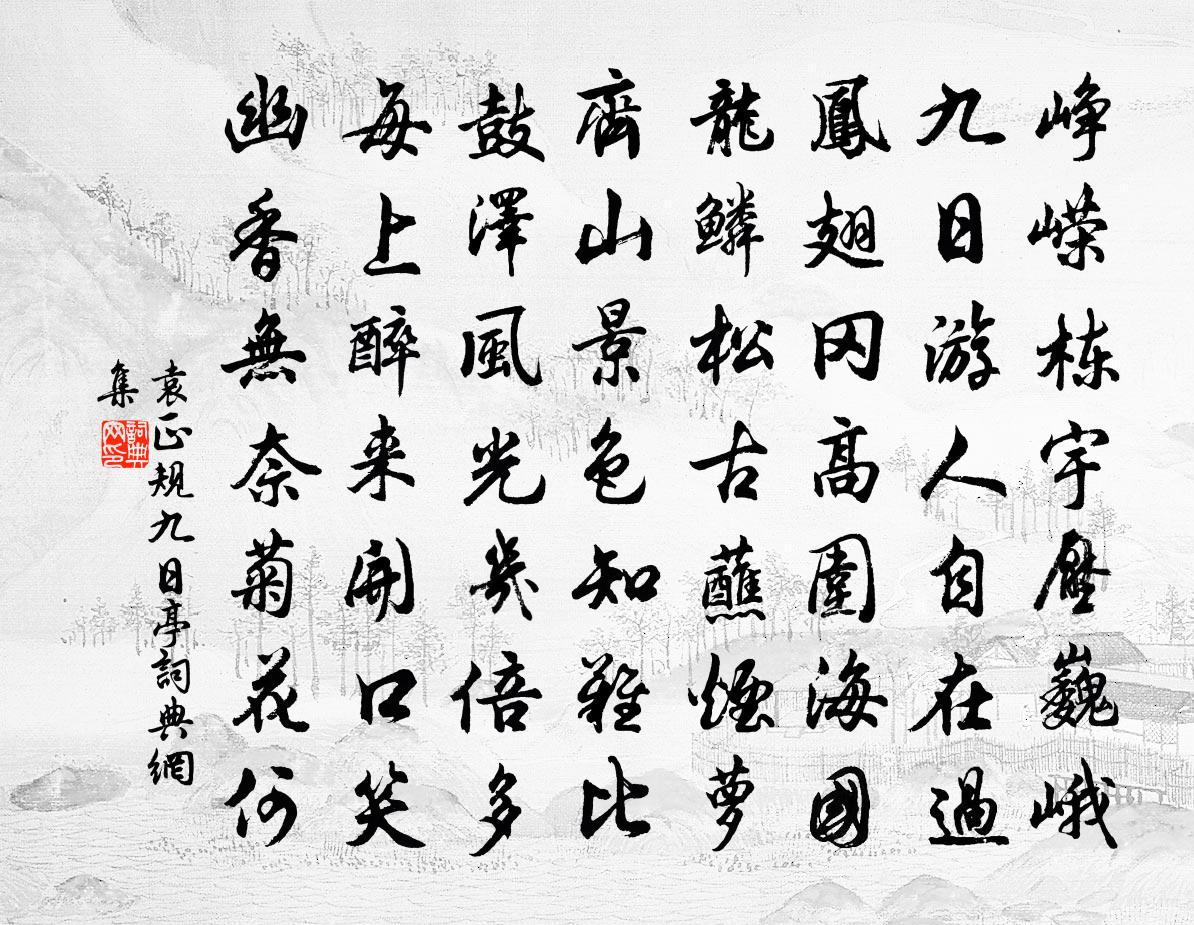 峥嵘栋宇壓巍峨
九日游人自在過
鳳翅冈高圍海國
龍鱗松古蘸煙萝
齊山景色知難比
鼓澤風光幾倍多
每上醉来開口笑
幽香無奈菊花何
袁正規九日亭詞典網
集
詞典网印